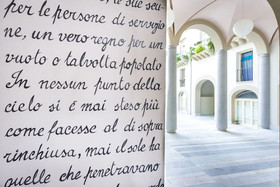 per le persone di servizio
ne, un vero regno per un
vuoto o talvolta popolato
In nessun punto della
cielo si è mai steso più
come facesse al di sopra
rinchiusa, mai il sole ha
quelle che penetravano